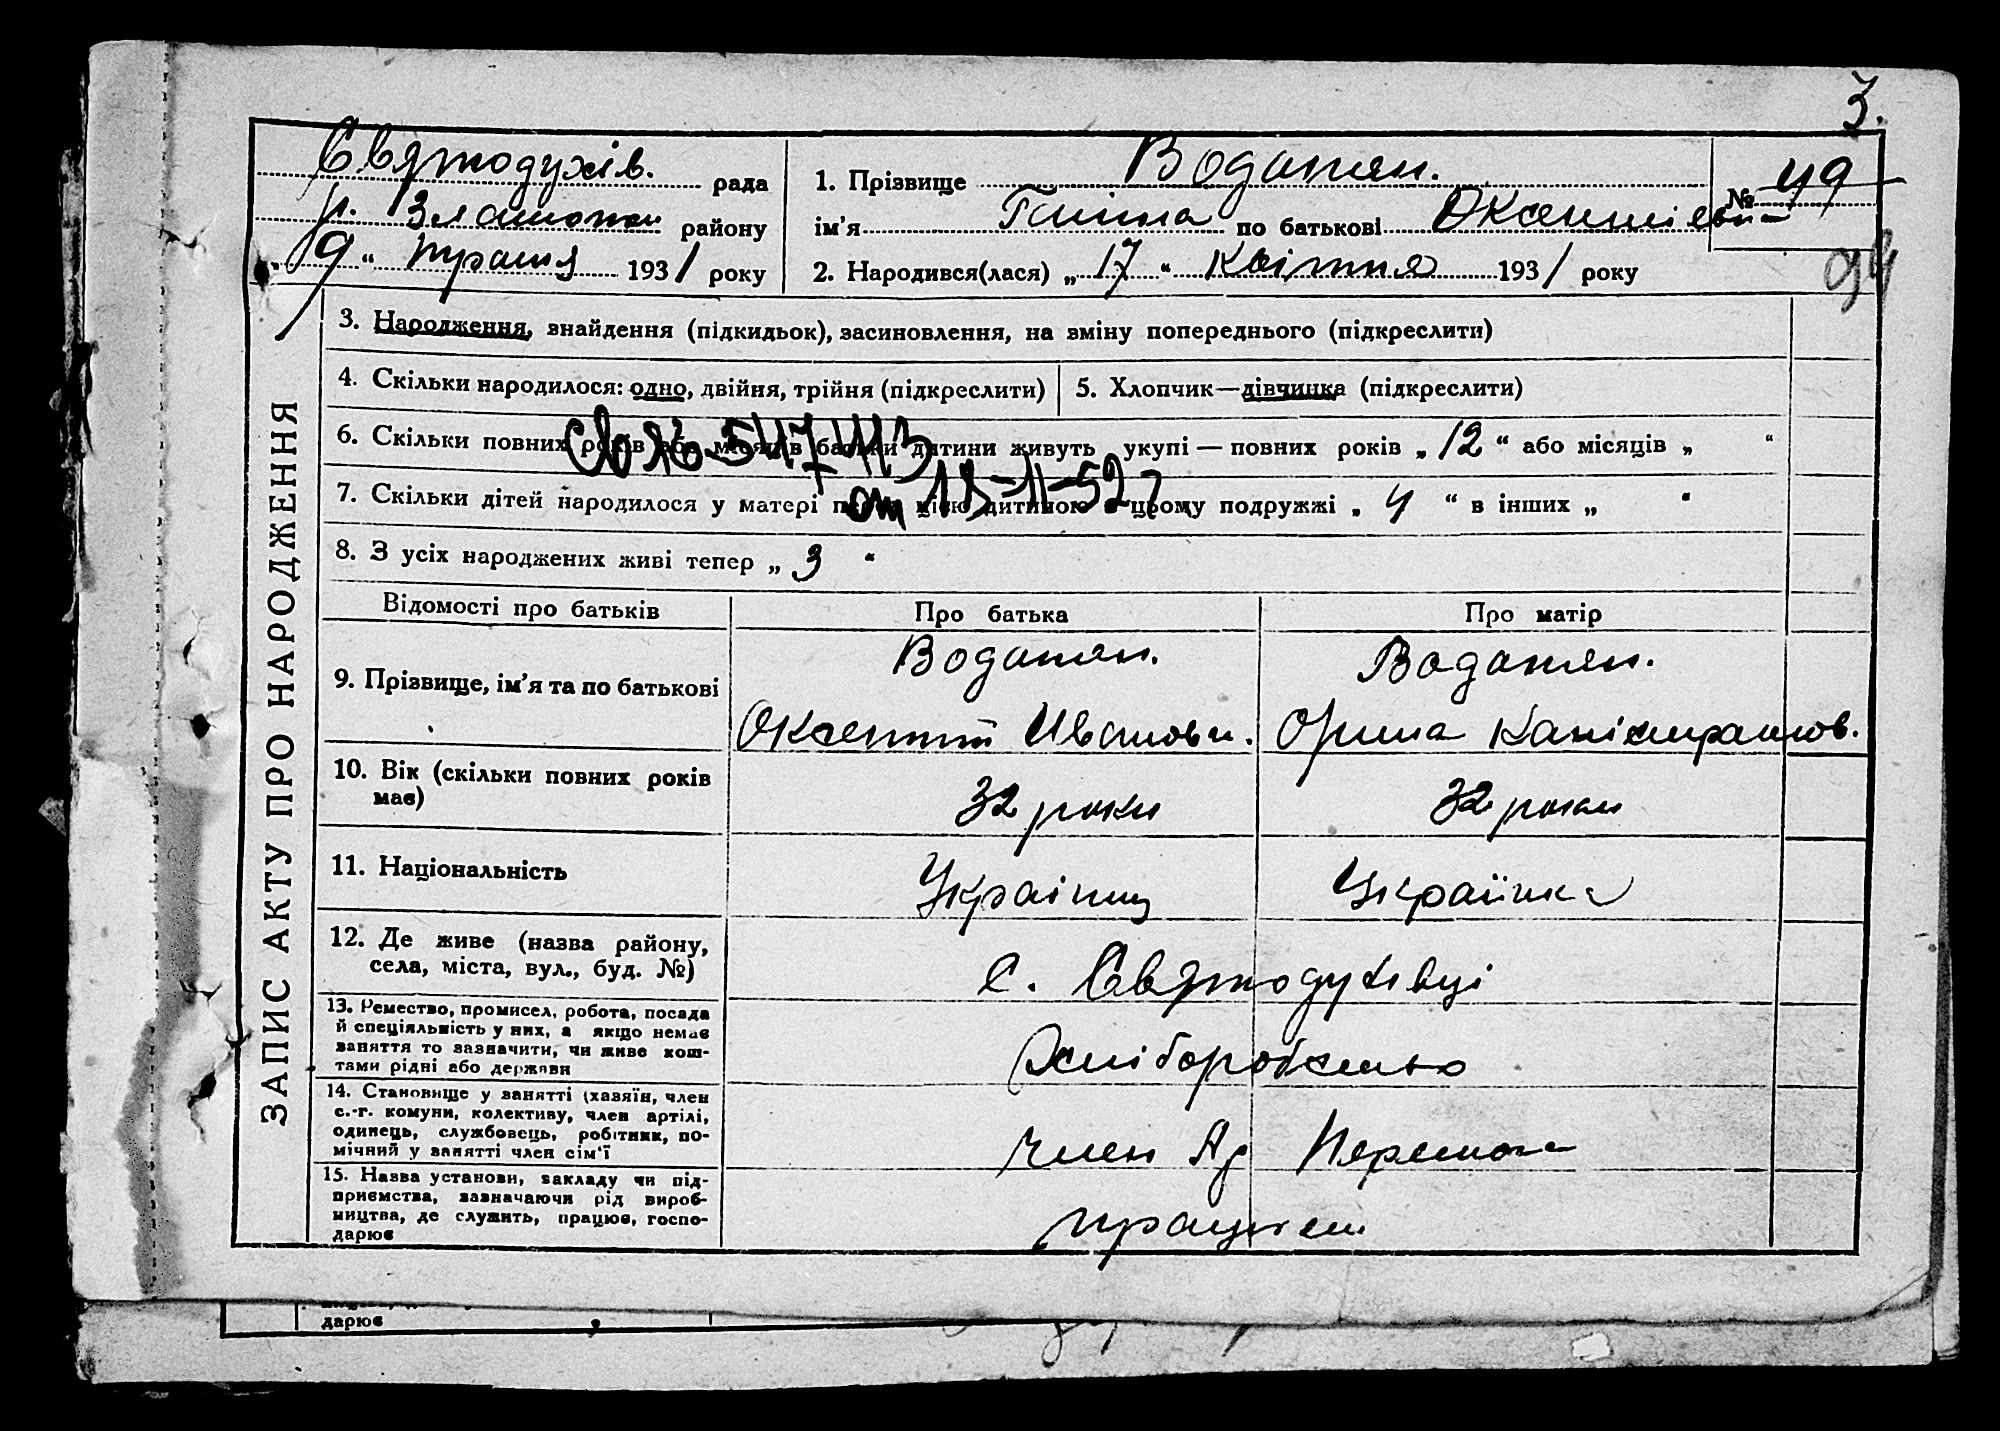 3.
Святодухів. рада
р. району
„ 9 “ травня 1931 року
1. Прізвище Водатян.
ім'я Ганна по батькові Оксентієвн
№ 49
94
2. Народився(лася) „ 17 “ квітня 1931 року
ЗАПИС АКТУ ПРО НАРОДЖЕННЯ
3. Народження, знайдення (підкидьок), засиновлення, на зміну попереднього (підкреслити)
4. Скільки народилося: одно, двійня, трійня (підкреслити)
5. Хлопчик—дівчинка (підкреслити)
6. Скільки повних років або місяців батьки дитини живуть укупі — повних років „ 12 “ або місяців „ “
Св №
от 13-II-52 г
7. Скільки дітей народилося у матері перед цією дитиною в цьому подружжі „ 4 “ в інших „ “
8. З усіх народжених живі тепер „ 3 “
Відомості про батьків Про батька Про матір
9. Прізвище, ім'я та по батькові
Водатян. Водатян.
Оксентій Иванови. Орина
10. Вік (скільки повних років
має)
32 роки 32 роки
11. Національність
Українц Українка
12. Де живе (назва району,
села, міста, вул., буд. №)
с. Святодухівці
13. Ремество, промисел, робота, посада
й спеціяльність у них, а якщо немає
заняття то зазначити, чи живе кош-
тами рідні або держави
Хліборобство
14. Становище у занятті (хазяїн, член
с.-г. комуни, колективу, член артілі,
одинець, службовець, робітник, по-
мічний у занятті член сім'ї
член Ар Перемога
15. Назва установи, закладу чи під-
приємства, зазначаючи рід вироб-
ництва, де служить, працює, госпо-
дарює
дарює